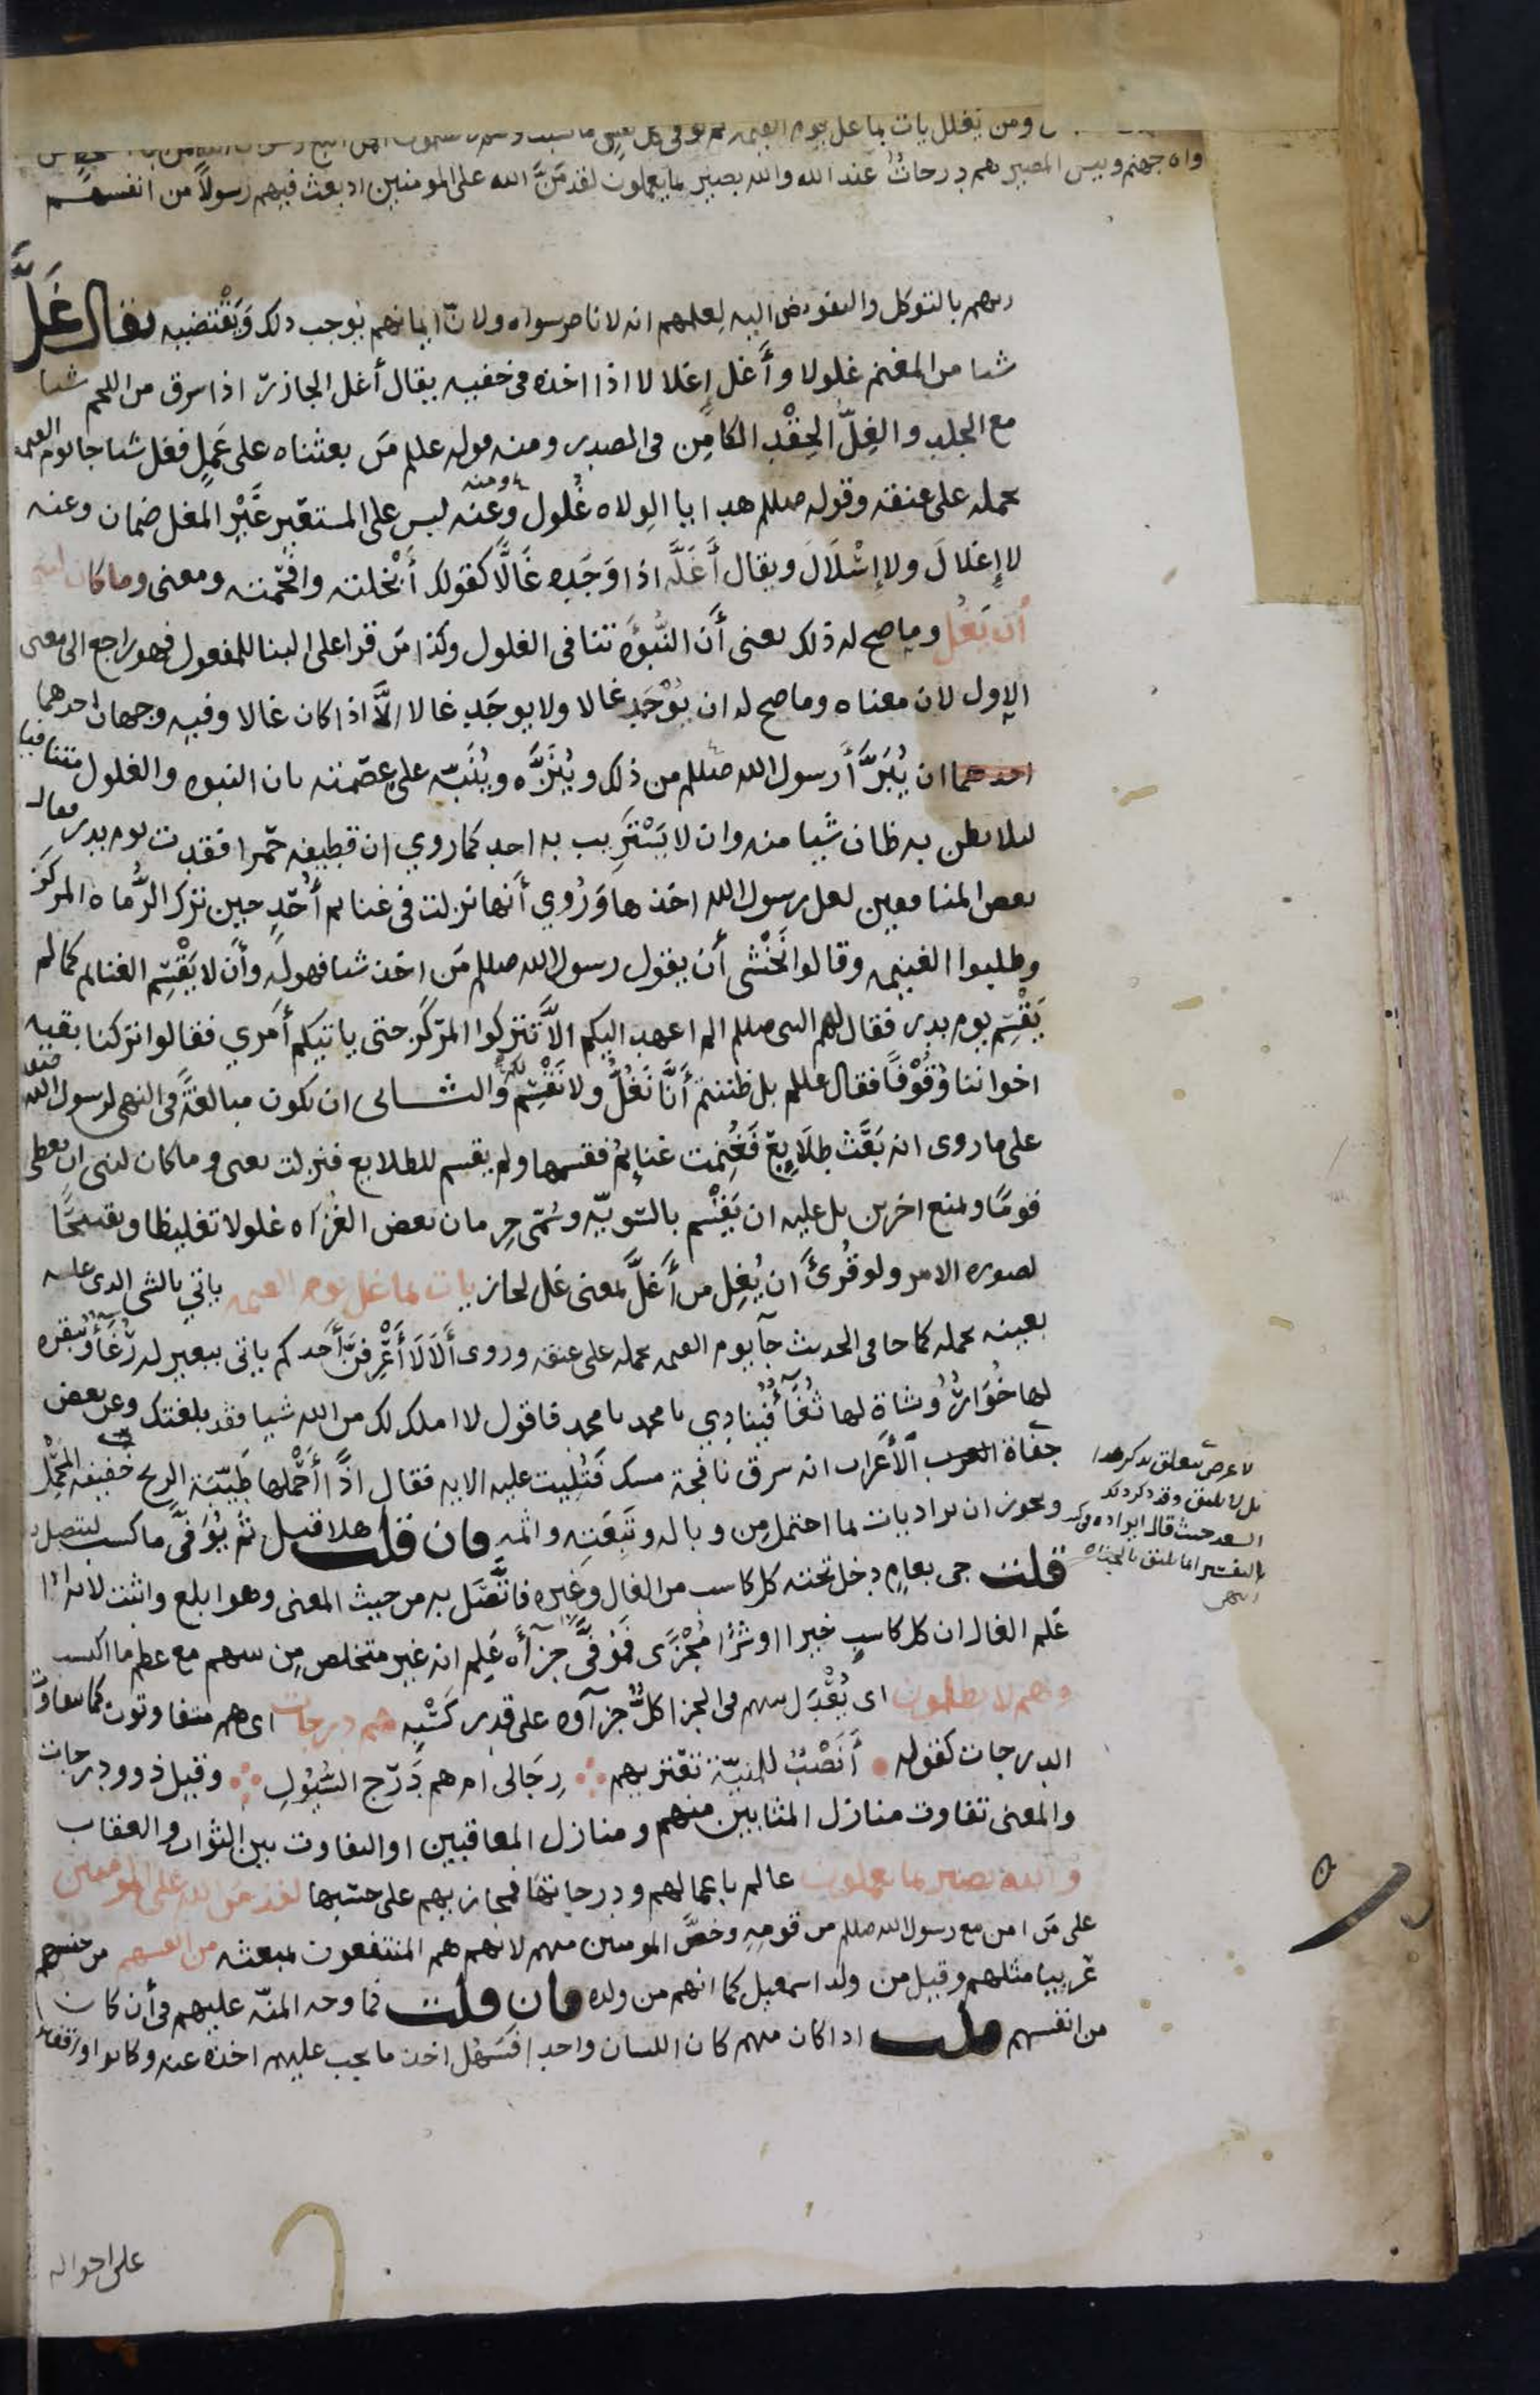 ومن يغلل يات بما غل يوم القيمه ثم توفى كل نفس ما كسبت وهم لا يظلمون افمن اتبع رضوان الله
واه جهنم وبيس المصير هم درجات عند الله والله بصير بما يعملون لقد منّ الله على المومنين اذ بعث فيهم رسولا من انفسهم
ربهم بالتوكل والتفويض اليه لعلمهم انه لا ناصر سواه ولانّ ايمانهم يوجب ذلك ويَقْتضيه يقال غَلَّ
شيا من المغنم غلولا وأَغل إغلالا اذا اخذه في خفيه يقال أغل الجازر اذا سرق من اللحم شيا
مع الجلد والغِلّ الحِقْد الكامِن في الصدر ومنه قوله عللم مَن بعثناه على عَمَلٍ فغل شيا جا يوم القيمه
يحمله على عنقه وقوله صللم هدايا الولاه غُلول وعنه ومنه ليس على المستعير غَيْرِ المغل ضمان وعنه
لا إغلالَ ولا إسْلالَ ويقال أَغَلَّه اذا وَجَده غالًّا كقولك أَبْخلته وافْحَمته ومعنى وما كان لنبي
أن يَغُل وما صح له ذلك يعنى أَن النُّبوَّه تنافى الغلول وكذا مَن قرا على البنا للمفعول فهو راجع الى معنى
الاول لان معناه وما صح له ان يُوْجَد غالا ولا يوجَد غالا الَّا اذا كان غالا وفيه وجهان احدهما
احدهما ان يُبَرَّأَ رسول الله صللم من ذلك ويُنَزَّه ويُنَبّه على عصْمته بان النبوه والغلول متنافيا
ليلا يظن به ظان شيا منه وان لا يَسْتَريب به احد كما روي ان قطيفه حَمرا فقدت يوم بدر فقال
بعض المنافقين لعل رسول الله اخذها وَرُوي أنها نزلت في غنايم أُحُدٍ حين ترك الرُّماه المركز
وطلبوا الغنيمه وقالوا نَخْشى أن يقول رسول الله صللم مَن اخذ شيا فهو له وأَن لا يَقْسِم الغنايم كما لم
يَقْسِم يوم بدر فقال لهم النبى صللم الم اعهد اليكم الّا تتركوا المركَز حتى ياتيكم أَمري فقالوا تركنا بقيه
اخواننا وُقُوْفًا فقال عللم بل ظننتم أَنَّا نَغُلُّ ولا نَقْسِم لكم والثـــانى ان يكون مبالغةً في النهى لرسول الله صلعم
على ما روى انه بَعَث طَلايِع فَغُنِمت غنايمُ فقسمها ولم يقسم للطلايع فنزلت يعنى وما كان لنبى ان يعطى
قومًا ويمنع اخرين بل عليه ان يَقْسِم بالسّويّه وسُمّى حِرمان بعض الغُزاه غلولا تغليظا وتقبيحًا
لصوره الامر ولو قُرئَ ان يُغِل من أَغلَّ بمعنى غل لجاز يات بما غل يوم القيمه ياتي بالشى الذى غله
بعينه يحمله كما جا فى الحديث جآ يوم القيمه يحمله على عنقه وروى أَلَا لَا أَعْرِفنَّ أَحدكم ياتى ببعير له رُغَآءٌ وبقره
لها خُوَارٌ وشاة لها ثُغَآءٌ فينادي يا محمد يا محمد فاقول لا املك لك من الله شيا فقد بلغتك وعن بعض
جفاة العرب الأَعراب انه سرق نافجة مسك فَتُليت عليه الايه فقال اذًا أحملها طَيّبَة الريح خفيفه المَحْمِل
ويجوز ان يراد يات بما احتمل مِن وباله وتَبِعَتِه واثمه فان قلت هلا قيل ثم يُوَفَّى ما كسب ليتصل به
قلت جى بعامٍ دخل تحته كل كاسب من الغال وغيره فاتَّصَل به من حيث المعنى وهو ابلغ واثبت لانه اذا
عَلم الغال ان كل كاسبٍ خيرا او شرًا مُجْزًى فمُوَفًّى جزآه عَلِم انه غير متخلص مِن بينهم مع عظم ما اكتسب
وهم لا يظلمون اى يُعْدَل بينهم فى الجزا كلٌّ جزآوه على قدر كَسْبه هم درجات اى هم متفاوتون كما يتفاوت
الدرجات كقوله أَنَصْبٌ للمنيّة تعْتريهم رِجَالى ام هم دَرَج السُّيُولِ وقيل ذوو درجات
والمعنى تفاوت منازل المثابين منهم ومنازل المعاقبين او التفاوت بين الثواب والعقاب
والله بصير بما يعملون عالم باعمالهم ودرجاتها فمجازيهم على حسَبها لقد من الله على المومنين
على مَن امن مع رسول الله صللم من قومِهِ وخصَّ المومنين منهم لانهم هم المنتفعون بمبعثه من انفسهم من جنسهم
عَربيا مثلهم وقيل من ولد اسمعيل كما انهم من ولده فان قلت فما وجه المنّه عليهم في أن كان
من انفسهم قلت اذا كان منهم كان اللسان واحدا فسَهُل اخذ ما يجب عليهم اخذه عنه وكانوا واقفين
لا غرض يتعلق بذكر هذا
بل لا يليق وقد ذكر ذلك
السعد حيث قال ايراده في
التفسير انما يليق بالجفاه
انتهى
على احواله